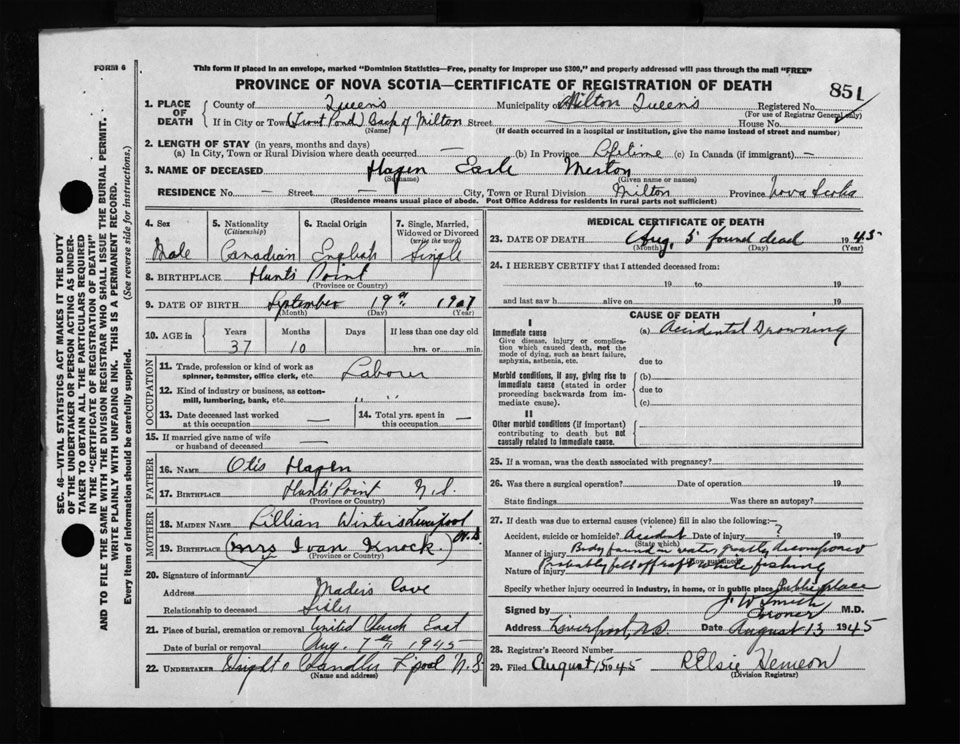 FORM 6
This form if placed in an envelope, marked "Dominion Statistics—Free, penalty for improper use $300," and properly addressed will pass through the mail "FREE"
PROVINCE OF NOVA SCOTIA—CERTIFICATE OF REGISTRATION OF DEATH
851
1. PLACE OF DEATH
County of Queens Municipality of Milton Queens Registered No.
(For use of Registrar General only)
If in City or Town (Trout Pond) Back of Milton Street House No.
(Name) (If death occurred in a hospital or institution, give the name instead of street and number)
2. LENGTH OF STAY (in years, months and days)
(a) In City, Town or Rural Division where death occurred — (b) In Province Lifetime (c) In Canada (if immigrant) —
3. NAME OF DECEASED Hagen Earle Merton
(Surname) (Given name or names)
RESIDENCE No. — Street — City, Town or Rural Division Milton Province Nova Scotia
(Residence means usual place of abode. Post Office Address for residents in rural parts not sufficient)
4. Sex Male
5. Nationality (Citizenship) Canadian
6. Racial Origin English
7. Single, Married, Widowed or Divorced (write the word) Single
8. BIRTHPLACE Hunts Point
(Province or Country)
9. DATE OF BIRTH September 19th 1907
(Month) (Day) (Year)
10. AGE in Years Months Days If less than one day old
37 10 hrs. or min.
OCCUPATION
11. Trade, profession or kind of work as spinner, teamster, office clerk, etc. Labourer
12. Kind of industry or business, as cotton-mill, lumbering, bank, etc. " "
13. Date deceased last worked at this occupation —
14. Total yrs. spent in this occupation —
15. If married give name of wife or husband of deceased —
FATHER
16. NAME Otis Hagen
17. BIRTHPLACE Hunts Point N.S.
(Province or Country)
MOTHER
18. MAIDEN NAME Lillian Winters Liverpool N.S.
19. BIRTHPLACE (Mrs Ivan Knock.)
(Province or Country)
20. Signature of informant
Address Maders Cove
Relationship to deceased Sister
21. Place of burial, cremation or removal United Church East
Date of burial or removal Aug. 7th 1945
22. UNDERTAKER Wright & Chandler L'pool N.S.
(Name and address)
MEDICAL CERTIFICATE OF DEATH
23. DATE OF DEATH Aug. 5 found dead 1945
(Month) (Day) (Year)
24. I HEREBY CERTIFY that I attended deceased from:
19 to 19
and last saw h alive on 19
CAUSE OF DEATH
I
Immediate cause (a) Accidental Drowning
Give disease, injury or complication which caused death, not the mode of dying, such as heart failure, asphyxia, asthenia, etc.
due to
Morbid conditions, if any, giving rise to immediate cause (stated in order proceeding backwards from immediate cause).
(b)
due to
(c)
II
Other morbid conditions (if important) contributing to death but not causally related to immediate cause.
25. If a woman, was the death associated with pregnancy?
26. Was there a surgical operation? Date of operation 19
State findings Was there an autopsy?
27. If death was due to external causes (violence) fill in also the following:—
Accident, suicide or homicide? Accident Date of injury ? 19
(State which)
Manner of injury Body found in water, greatly decomposed
Nature of injury Probably fell off raft while fishing
Specify whether injury occurred in industry, in home, or in public place Public place
Signed by J W Smith Coroner M.D.
Address Liverpool, N.S. Date August 13 1945
28. Registrar's Record Number
29. Filed August 15 1945 R Elsie Hemeon
(Division Registrar)
SEC. 46—VITAL STATISTICS ACT MAKES IT THE DUTY
OF THE UNDERTAKER OR PERSON ACTING AS UNDERTAKER TO OBTAIN ALL THE PARTICULARS REQUIRED
IN THE "CERTIFICATE OF REGISTRATION OF DEATH"
AND TO FILE THE SAME WITH THE DIVISION REGISTRAR WHO SHALL ISSUE THE BURIAL PERMIT.
WRITE PLAINLY WITH UNFADING INK. THIS IS A PERMANENT RECORD.
Every item of information should be carefully supplied. (See reverse side for instructions.)